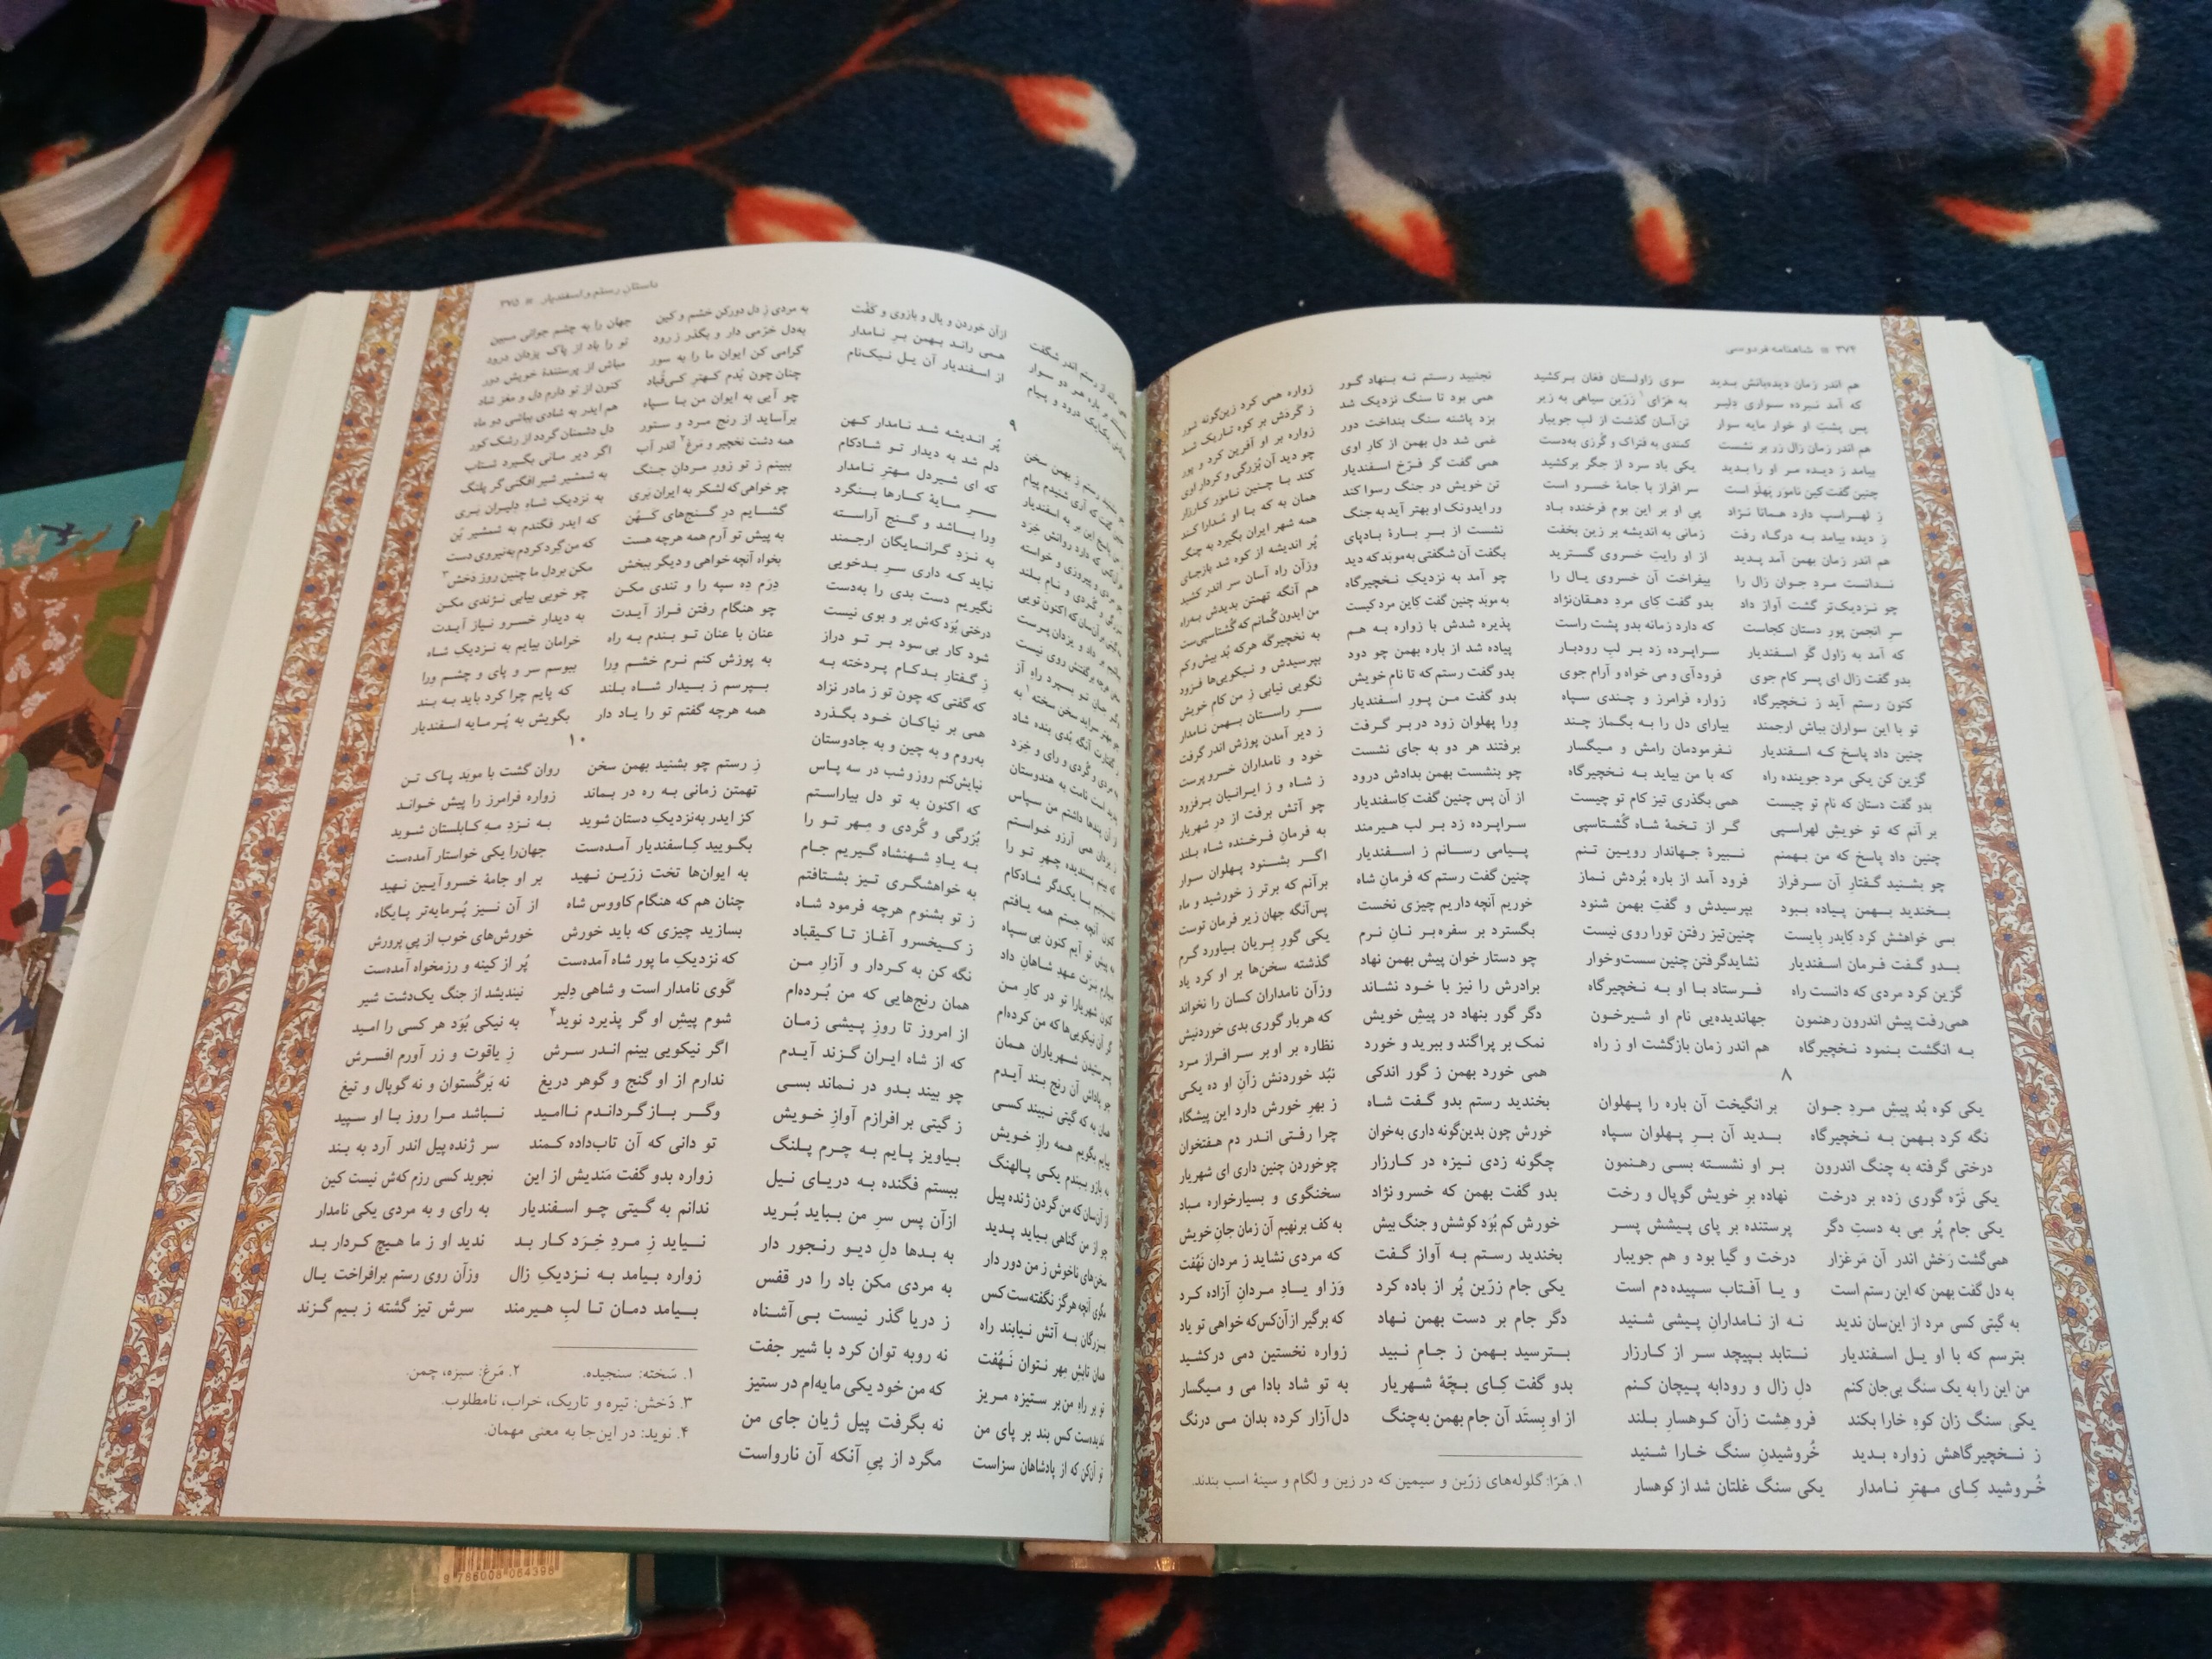 ۳۷۴ شاهنامه فردوسی
هم اندر زمان دیده‌بانش بدید سوی زاولستان فغان برکشید
که آمد نبرده سواری دلیر به هَرّای۱ زرّین سیاهی به زیر
پس پشت او خوار مایه سوار تن‌آسان گذشت از لب جویبار
هم اندر زمان زال زر بر نشست کمندی به فتراک و گرزی به‌دست
بیامد ز دیده مر او را بدید یکی باد سرد از جگر برکشید
چنین گفت کین نامور پهلو است سر افراز با جامهٔ خسرو است
ز لهراسپ دارد همانا نژاد پی او بر این بوم فرخنده باد
ز دیده بیامد به درگاه رفت زمانی به اندیشه بر زین بخفت
هم اندر زمان بهمن آمد پدید از او رایتِ خسروی گسترید
ندانست مردِ جوان زال را بیفراخت آن خسروی یال را
چو نزدیک‌تر گشت آواز داد بدو گفت کای مردِ دهقان‌نژاد
سرِ انجمن پورِ دستان کجاست که دارد زمانه بدو پشت راست
که آمد به زاول گو اسفندیار سراپرده زد بر لبِ رودبار
بدو گفت زال ای پسر کام جوی فرودآی و می خواه و آرام جوی
کنون رستم آید ز نخچیرگاه زواره فرامرز و چندی سپاه
تو با این سواران بباش ارجمند بیارای دل را به بگماز چند
چنین داد پاسخ که اسفندیار نفرمودمان رامش و میگسار
گزین کن یکی مرد جوینده راه که با من بیاید به نخچیرگاه
بدو گفت دستان که نام تو چیست همی بگذری تیز کام تو چیست
بر آنم که تو خویشِ لهراسپی گر از تخمهٔ شاه گُشتاسپی
چنین داد پاسخ که من بهمنم نبیرهٔ جهاندار رویین تنم
چو بشنید گفتارِ آن سرفراز فرود آمد از باره بُردش نماز
بخندید بهمن پیاده ببود بپرسیدش و گفتِ بهمن شنود
بسی خواهشش کرد کایدر بایست چنین‌تیز رفتن تورا روی نیست
بدو گفت فرمانِ اسفندیار نشایدگرفتن چنین سست‌وخوار
گزین کرد مردی که دانست راه فرستاد با او به نخچیرگاه
همی‌رفت پیش اندرون رهنمون جهاندیده‌یی نام او شیرخون
به انگشت بنمود نخچیرگاه هم اندر زمان بازگشت او ز راه
۸
یکی کوه بُد پیشِ مردِ جوان بر انگیخت آن باره را پهلوان
نگه کرد بهمن به نخچیرگاه بدید آن برِ پهلوان سپاه
درختی گرفته به چنگ اندرون بر او نشسته بسی رهنمون
یکی نرّه گوری زده بر درخت نهاده برِ خویش گوپال و رخت
یکی جام پُر می به دستِ دگر پرستنده بر پای پیشش پسر
همی‌گشت رَخش اندر آن مَرغزار درخت و گیا بود و هم جویبار
به دل گفت بهمن که این رستم است و یا آفتاب سپیده دم است
به گیتی کسی مرد از این‌سان ندید نه از نامدارانِ پیشی شنید
بترسم که با او یل اسفندیار نتابد بپیچد سر از کارزار
من این را به یک سنگ بی‌جان کنم دلِ زال و رودابه پیچان کنم
یکی سنگ زان کوهِ خارا بکند فروهِشت زآن کوهسارِ بلند
ز نخچیرگاهش زواره بدید خُروشیدنِ سنگ خارا شنید
خُروشید کِای مهترِ نامدار یکی سنگ غلتان شد از کوهسار
نجنبید رستم نه بنهاد گور زواره همی کرد زین‌گونه شور
همی بود تا سنگ نزدیک شد ز گَردش بر کوه تاریک شد
بزد پاشنه سنگ بنداخت دور زواره بر او آفرین کرد و پور
غمی شد دلِ بهمن از کارِ اوی چو دید آن بُزرگی و کردارِ اوی
همی گفت گر فرّخ اسفندیار کند با چنین نامور کارزار
تن خویش در جنگ رسوا کند همان به که با او مُدارا کند
ور ایدونک او بهتر آید به جنگ همه شهر ایران بگیرد به چنگ
نشست از برِ بارهٔ بادپای پُر اندیشه از کوه شد بازجای
بگفت آن شگفتی به‌موبَد که دید وزآن راه آسان سر اندر کشید
چو آمد به نزدیکِ نخچیرگاه هم آنگه تهمتن بدیدش به‌راه
به موبَد چنین گفت کاین مرد کیست من ایدون گُمانم که گُشتاسپی‌ست
پذیره شدش با زواره به هم به نخچیرگه هرکه بُد بیش‌وکم
پیاده شد از باره بهمن چو دود بپرسیدش و نیکویی‌ها فزود
بدو گفت رستم که تا نامِ خویش نگویی نیابی ز من کامِ خویش
بدو گفت من پورِ اسفندیار سرِ راستان بهمنِ نامدار
ورا پهلوان زود دربر گرفت ز دیر آمدن پوزش اندر گرفت
برفتند هر دو به جای نشست خود و نامداران خسروپرست
چو بنشست بهمن بدادش درود ز شاه و ز ایرانیان برفزود
از آن پس چنین گفت کِاسفندیار چو آتش برفت از درِ شهریار
سراپرده زد بر لب هیرمند به فرمانِ فرخنده شاه بلند
پیامی رسانم ز اسفندیار اگر بشنود پهلوان سوار
چنین گفت رستم که فرمانِ شاه برآنم که برتر ز خورشید و ماه
خوریم آنچه داریم چیزی نخست پس‌آنگه جهان زیر فرمان توست
بگسترد بر سفره‌بر نانِ نرم یکی گورِ بریان بیاورد گرم
چو دستار خوان پیش بهمن نهاد گذشته سخن‌ها بر او کرد یاد
برادرش را نیز با خود نشاند وزآن نامداران کسان را نخواند
دگر گور بنهاد در پیشِ خویش که هربار گوری بدی خوردنیش
نمک بر پراگند و ببرید و خورد نظاره بر اوبر سرافراز مرد
همی خورد بهمن ز گور اندکی نبُد خوردنش زآنِ او ده یکی
بخندید رستم بدو گفت شاه ز بهرِ خورش دارد این پیشگاه
خورش چون بدین‌گونه داری به‌خوان چرا رفتی اندر دم هفتخوان
چگونه زدی نیزه در کارزار چوخوردن چنین داری ای شهریار
بدو گفت بهمن که خسرونژاد سخنگوی و بسیارخواره مباد
خورش کم بُوَد کوشش و جنگ بیش به کف برنهیم آن زمان جانِ خویش
بخندید رستم به آواز گفت که مردی نشاید ز مردان نَهُفت
یکی جام زرّین پُر از باده کرد وَز او یادِ مردانِ آزاده کرد
دگر جام بر دست بهمن نهاد که برگیر ازآن‌کس‌که خواهی تو یاد
بترسید بهمن ز جامِ نبید زواره نخستین دمی درکشید
بدو گفت کِای بچّهٔ شهریار به تو شاد بادا می و میگسار
از او بِستَد آن جام بهمن به‌چنگ دل‌آزار کرده بدان می درنگ
۱. هَرّا: گلوله‌های زرّین و سیمین که در زین و لگام و سینهٔ اسب بندند.
داستان رستم و اسفندیار ۳۷۵
از رستم اندر شگفت ازآن خوردن و یال و بازوی و کَفْت
هر دو سوار همی راند بهمن برِ نامدار
یکایک درود و پیام از اسفندیار آن یلِ نیک‌نام
۹
چو بشنید رستم ز بهمن سخن پُر اندیشه شد نامدار کهن
چنین گفت کآری شنیدم پیام دلم شد به دیدار تو شادکام
پاسخ این بر به اسفندیار که ای شیردل مهترِ نامدار
که دارد روانش خرد سرِ مایهٔ کارها بنگرد
و پیروزی و خواسته ورا باشد و گنج آراسته
و گُردی و نامِ بلند به نزدِ گرانمایگان ارجمند
که اکنون تویی نباید که داری سرِ بدخویی
داد و یزدان پرست نگیریم دست بدی را به‌دست
سخن هرچه برگفتنش روی نیست درختی بُوَد که‌ش بر و بوی نیست
وگر جانِ تو بسپرد راهِ آز شود کار بی‌سود بر تو دراز
سخن سَخته۱ به ز گفتارِ بدکام پردخته به
بنده شاد که گفتی که چون تو ز مادر نژاد
گُردی و رای و خِرَد همی بر نیاکانِ خود بگذرد
نامت به هندوستان به‌روم و به چین و به جادوستان
از آن پندها داشتم من سپاس نیایش‌کنم روز و شب در سه پاس
ز یزدان همی آرزو خواستم که اکنون به تو دل بیاراستم
که بینم پسندیده چهرِ تو را بُزرگی و گُردی و مِهرِ تو را
نشینیم با یکدگر شادکام به یادِ شهنشاه گیریم جام
کنون آنچه جستم همه یافتم به خواهشگری تیز بشتافتم
به پیش تو آیم کنون بی‌سپاه ز تو بشنوم هرچه فرمود شاه
بیارم برت عهدِ شاهانِ داد ز کیخسرو آغاز تا کیقباد
کنون شهریارا تو در کارِ من نگه کن به کردار و آزارِ من
گر آن نیکویی‌ها که من کرده‌ام همان رنج‌هایی که من بُرده‌ام
پرستیدنِ شهریاران همان از امروز تا روزِ پیشی زمان
چو پاداش آن رنج بند آیدم که از شاه ایران گزند آیدم
همان به که گیتی نبیند کسی چو بیند بدو در نماند بسی
بیایم بگویم همه رازِ خویش ز گیتی برافرازم آوازِ خویش
به بازو ببندم یکی پالهنگ بیاویز پایم به چرمِ پلنگ
از آن‌سان که من گردن ژنده پیل ببستم فگنده به دریای نیل
چو از من گناهی بیاید پدید ازآن پس سرِ من بباید بُرید
سخن‌های ناخوش ز من دور دار به بدها دلِ دیو رنجور دار
مگوی آنچه هرگز نگفته‌ست کس به مردی مکن باد را در قفس
بزرگان به آتش نیابند راه ز دریا گذر نیست بی‌آشناه
همان تابشِ مهر نتوان نَهُفت نه روبه توان کرد با شیر جفت
تو بر راهِ من‌بر ستیزه مریز که من خود یکی مایه‌ام در ستیز
ندیده‌ست کس بند بر پای من نه بگرفت پیل ژیان جای من
تو آن‌کن که از پادشاهان سزاست مگرد از پیِ آنکه آن نارواست
به مردی ز دل دورکن خشم و کین جهان را به چشم جوانی مبین
به‌دل خرّمی دار و بگذر ز رود تو را باد از پاک یزدان درود
گرامی کن ایوان ما را به سور مباش از پرستندهٔ خویش دور
چنان چون بُدم کهترِ کی‌قُباد کنون از تو دارم دل و مغز شاد
چو آیی به ایوان من با سپاه هم ایدر به شادی بباشی دو ماه
برآساید از رنج مرد و ستور دلِ دشمنان گردد از رشک کور
همه دشت نخچیر و مَرغ۲ اندر آب اگر دیر مانی بگیرد شتاب
ببینم ز تو زورِ مردانِ جنگ به شمشیر شیر افگنی‌گر پلنگ
چو خواهی که لشکر به ایران بَری به نزدیکِ شاهِ دلیران بَری
گشایم درِ گنج‌های کَهُن که ایدر فکندم به شمشیر بُن
به پیش تو آرم همه هرچه هست که من‌گِردکردم به‌نیروی دست
بخواه آنچه خواهی و دیگر ببخش مکن بردل ما چنین روز دَخش۳
دِرَم ده سپه را و تندی مکن چو خوبی بیابی نژندی مکن
چو هنگامِ رفتن فراز آیدت به دیدارِ خسرو نیاز آیدت
عنان با عنان تو بندم به راه خرامان بیایم به نزدیکِ شاه
به پوزش کنم نرم خشمِ ورا ببوسم سر و پای و چشمِ ورا
بپرسم ز بیدار شاهِ بلند که پایم چرا کرد باید به بند
همه هرچه گفتم تو را یاد دار بگویش به پُرمایه اسفندیار
۱۰
ز رستم چو بشنید بهمن سخن روان گشت با موبَد پاک تن
تهمتن زمانی به ره در بماند زواره فرامرز را پیش خواند
کز ایدر به‌نزدیکِ دستان شوید به نزدِ مهِ کابلستان شوید
بگویید کِاسفندیار آمده‌ست جهان‌را یکی خواستار آمده‌ست
به ایوان‌ها تخت زرّین نهید بر او جامهٔ خسروآیین نهید
چنان هم که هنگام کاووس شاه از آن نیز پُرمایه‌تر پایگاه
بسازید چیزی که باید خورش خورش‌های خوب از پی پرورش
که نزدیکِ ما پورِ شاه آمده‌ست پُر از کینه و رزمخواه آمده‌ست
گَوی نامدار است و شاهی دلیر نیندیشد از جنگ یک‌دشت شیر
شوم پیشِ او گر پذیرد نوید۴ به نیکی بُوَد هر کسی را امید
اگر نیکویی بینم اندر سرش ز یاقوت و زر آورم افسرش
ندارم از او گنج و گوهر دریغ نه بَرگُستوان و نه گوپال و تیغ
وگر بازگرداندم ناامید نباشد مرا روز با او سپید
تو دانی که آن تاب‌داده کمند سر ژنده پیل اندر آرد به بند
زواره بدو گفت مَندیش از این نجوید کسی رزم که‌ش نیست کین
ندانم به گیتی چو اسفندیار به رای و به مردی یکی نامدار
نیاید ز مردِ خِرَد کار بد ندید او ز ما هیچ کردار بد
زواره بیامد به نزدیکِ زال وزآن روی رستم برافراخت یال
بیامد دمان تا لبِ هیرمند سرش تیز گشته ز بیم گزند
۱. سَخته: سنجیده. ۲. مَرغ: سبزه، چمن.
۳. دَخش: تیره و تاریک، خراب، نامطلوب.
۴. نوید: در این‌جا به معنی مهمان.
9 786008 064398